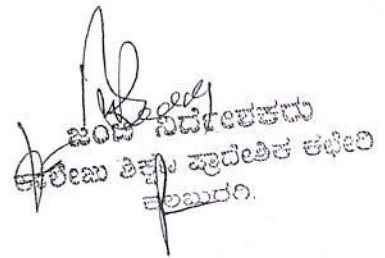 ಜಂಟಿ ನಿರ್ದೇಶಕರು
ಕಾಲೇಜು ಶಿಕ್ಷಣ ಪ್ರಾದೇಶಿಕ ಕಛೇರಿ
ಕಲಬುರಗಿ.